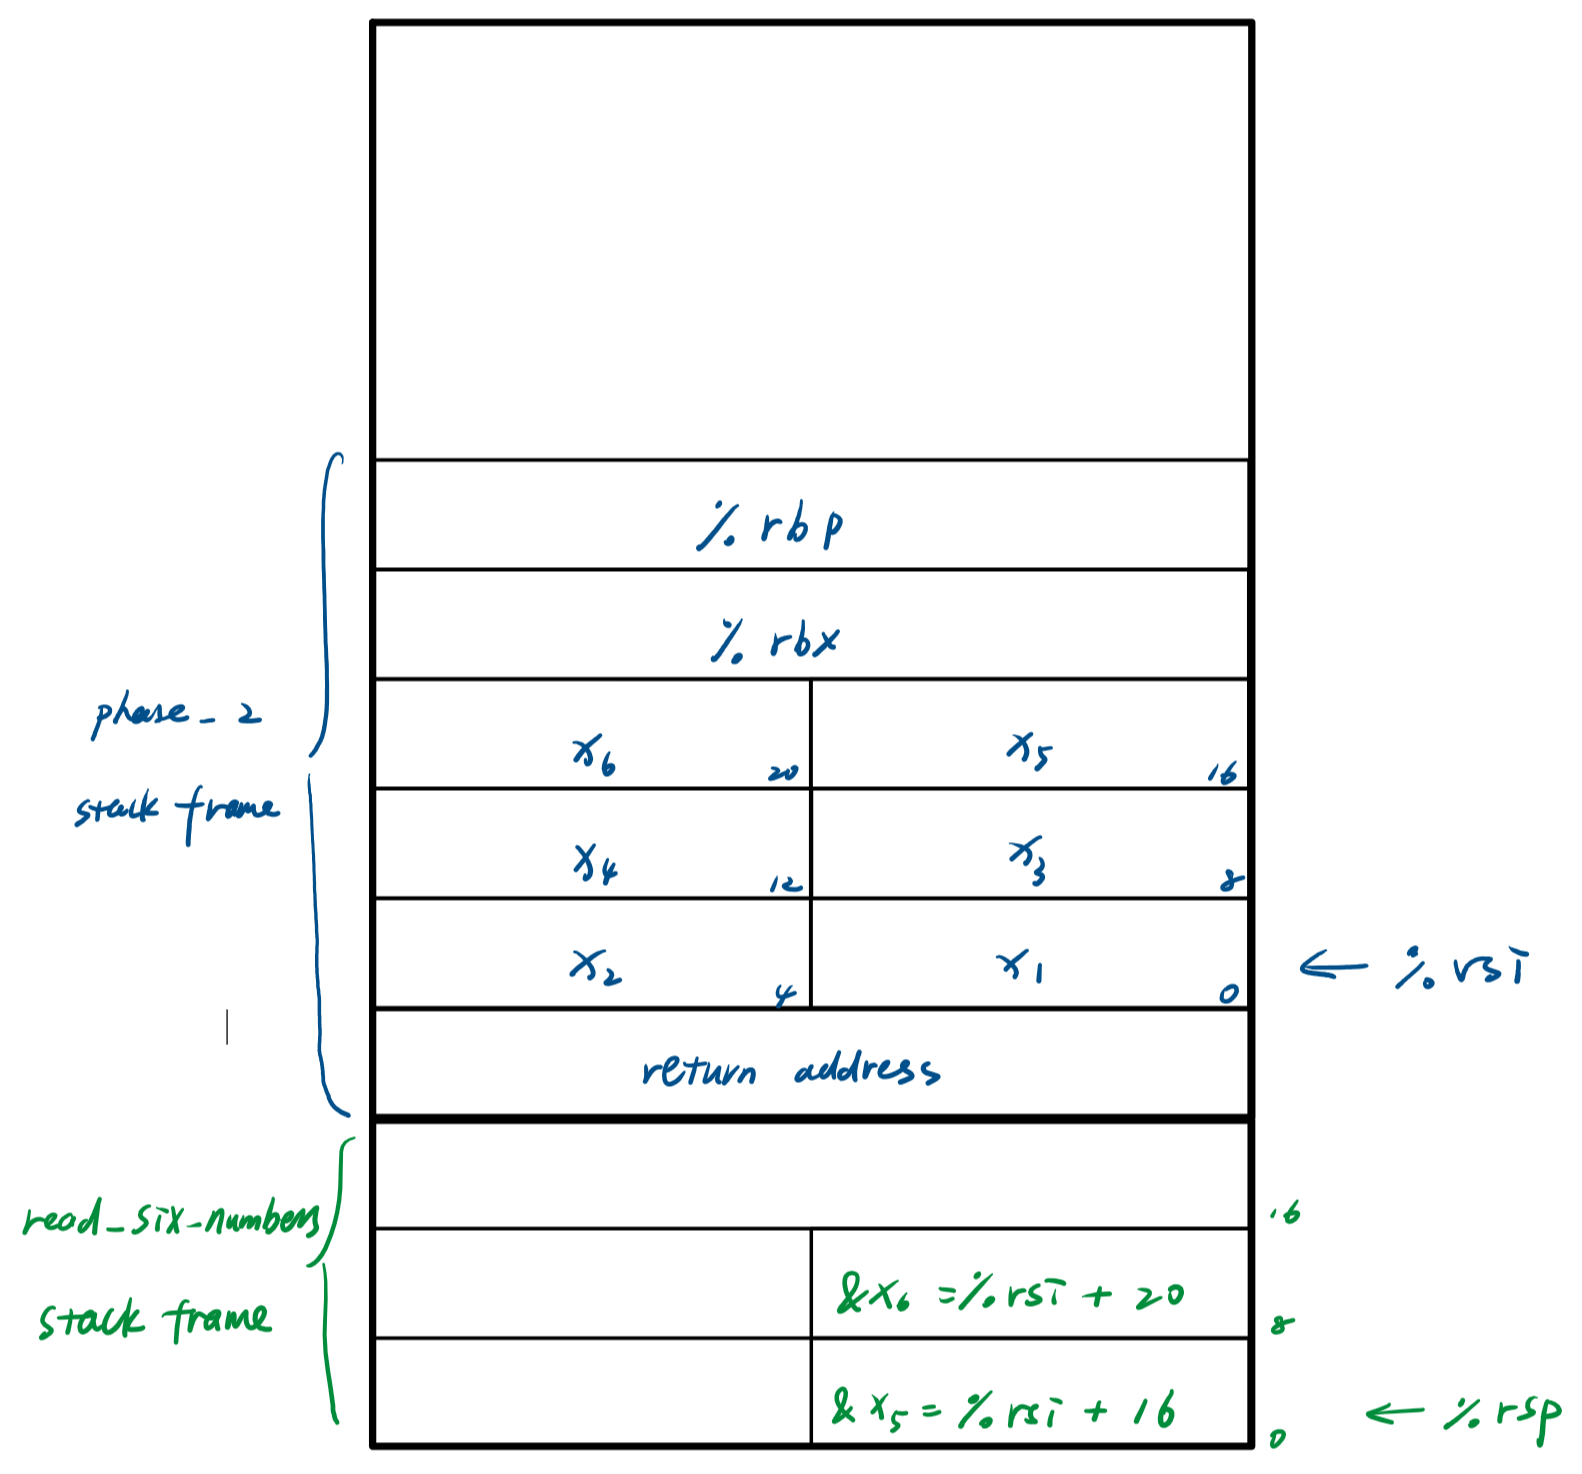 %rbp
%rbx
phase_2
stack frame
x6 20 x5 16
x4 12 x3 8
x2 4 x1 0 ← %rsi
return address
read_six_numbers
stack frame
16
&x6 = %rsi + 20 8
&x5 = %rsi + 16 0 ← %rsp